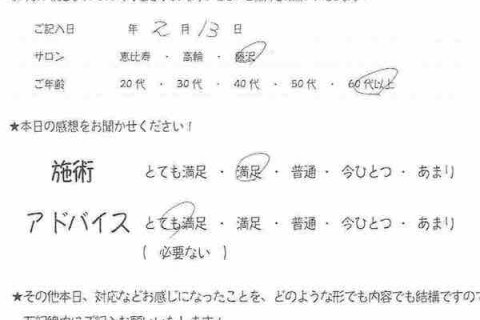 ご記入日 年 2 月 13 日
サロン 恵比寿 ・ 高輪 ・ 藤沢
ご年齢 20代 ・ 30代 ・ 40代 ・ 50代 ・ 60代以上
★本日の感想をお聞かせください！
施術 とても満足 ・ 満足 ・ 普通 ・ 今ひとつ ・ あまり
アドバイス とても満足 ・ 満足 ・ 普通 ・ 今ひとつ ・ あまり
( 必要ない )
★その他本日、対応などお感じになったことを、どのような形でも内容でも結構ですので